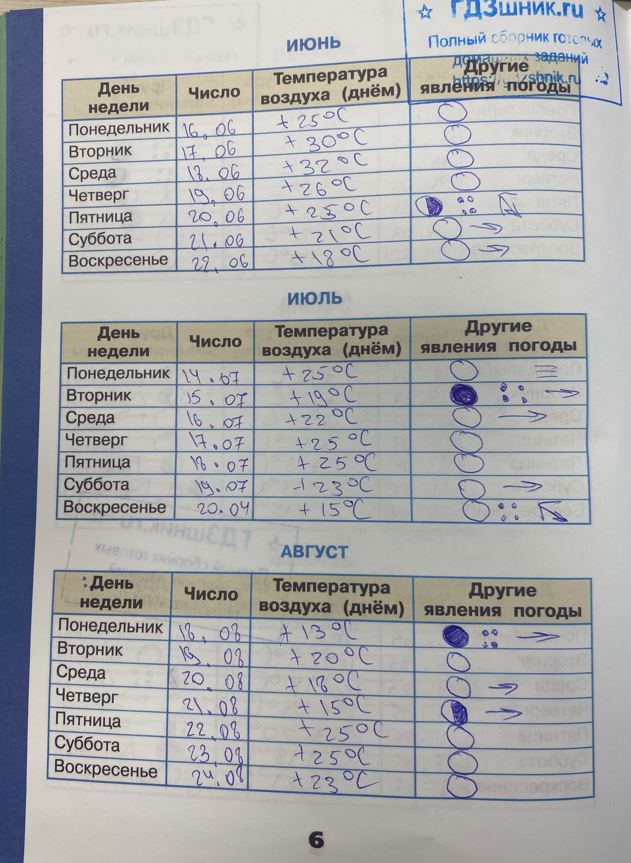 ☆ ГДЗшник.ru ☆
Полный сборник готовых
домашних заданий
ИЮНЬ
День недели Число Температура воздуха (днём) Другие явления погоды
Понедельник 16.06 +25°C
Вторник 17.06 +30°C
Среда 18.06 +32°C
Четверг 19.06 +26°C
Пятница 20.06 +25°C
Суббота 21.06 +21°C
Воскресенье 22.06 +18°C
ИЮЛЬ
День недели Число Температура воздуха (днём) Другие явления погоды
Понедельник 14.07 +25°C
Вторник 15.07 +19°C
Среда 16.07 +22°C
Четверг 17.07 +25°C
Пятница 18.07 +25°C
Суббота 19.07 +23°C
Воскресенье 20.04 +15°C
АВГУСТ
День недели Число Температура воздуха (днём) Другие явления погоды
Понедельник 18.08 +13°C
Вторник 19.08 +20°C
Среда 20.08 +18°C
Четверг 21.08 +15°C
Пятница 22.08 +25°C
Суббота 23.08 +25°C
Воскресенье 24.08 +23°C
6